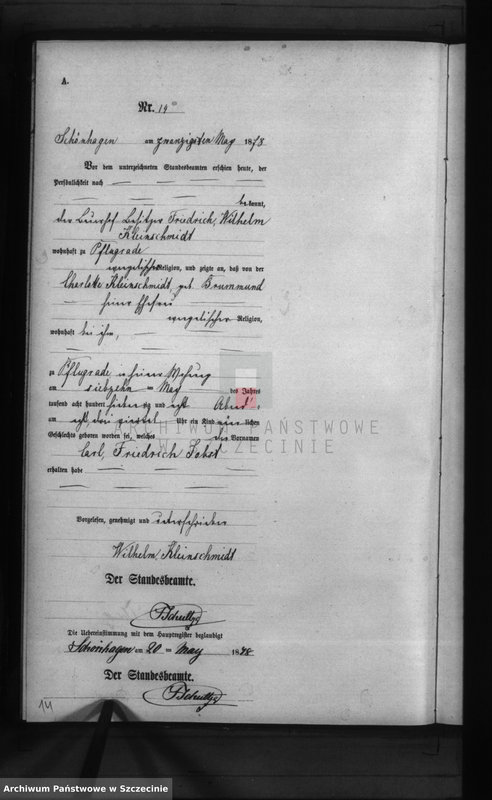 A.
Nr. 19
Schönhagen am zwanzigsten May 1878
Vor dem unterzeichneten Standesbeamten erschien heute, der
Persönlichkeit nach
bekannt,
der Bauerhof Besitzer Friedrich, Wilhelm
Kleinschmidt
wohnhaft zu Pflugrade
evangelischer Religion, und zeigte an, daß von der
Charlotte Kleinschmidt, geb. Brummund
seiner Ehefrau
evangelischer Religion,
wohnhaft bei ihm,
zu Pflugrade in seiner Wohnung
am siebzehn ten May des Jahres
tausend acht hundert siebenzig und acht Abends
um acht drei viertel Uhr ein Kind männlichen
Geschlechts geboren worden sei, welches die Vornamen
Carl, Friedrich
erhalten habe
Vorgelesen, genehmigt und unterschrieben
Wilhelm, Kleinschmidt
Der Standesbeamte.
Die Uebereinstimmung mit dem Hauptregister beglaubigt
Schönhagen am 20 ten May 1878
Der Standesbeamte.
14
ARCHIWUM PAŃSTWOWE
W SZCZECINIE
Archiwum Państwowe w Szczecinie